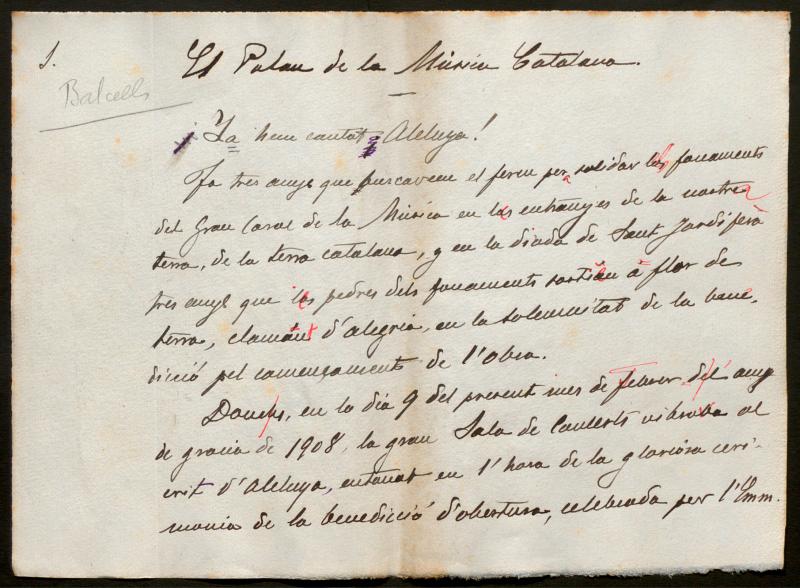 1.
El Palau de la Música Catalana.
Balcells
¡Ja hem cantat Aleluya!
Fa tres anys que buscavem el ferm per a solidar les fonaments
del Gran Casal de la Música en les entranyes de la nostra
terra, de la terra catalana, y en la diada de Sant Jordi ferà
tres anys que les pedres dels fonaments sortíen à flor de
terra, clamant d'alegria, en la solemnitat de la bene-
dicció pel començaments de l'Obra.
Donchs, en lo dia 9 del present mes de febrer del any
de gracia de 1908, la gran Sala de Concerts vibrava al
crit d'Aleluya, entonat en l'hora de la gloriosa ceri-
monia de la benedicció d'obertura, celebrada per l'Emm.